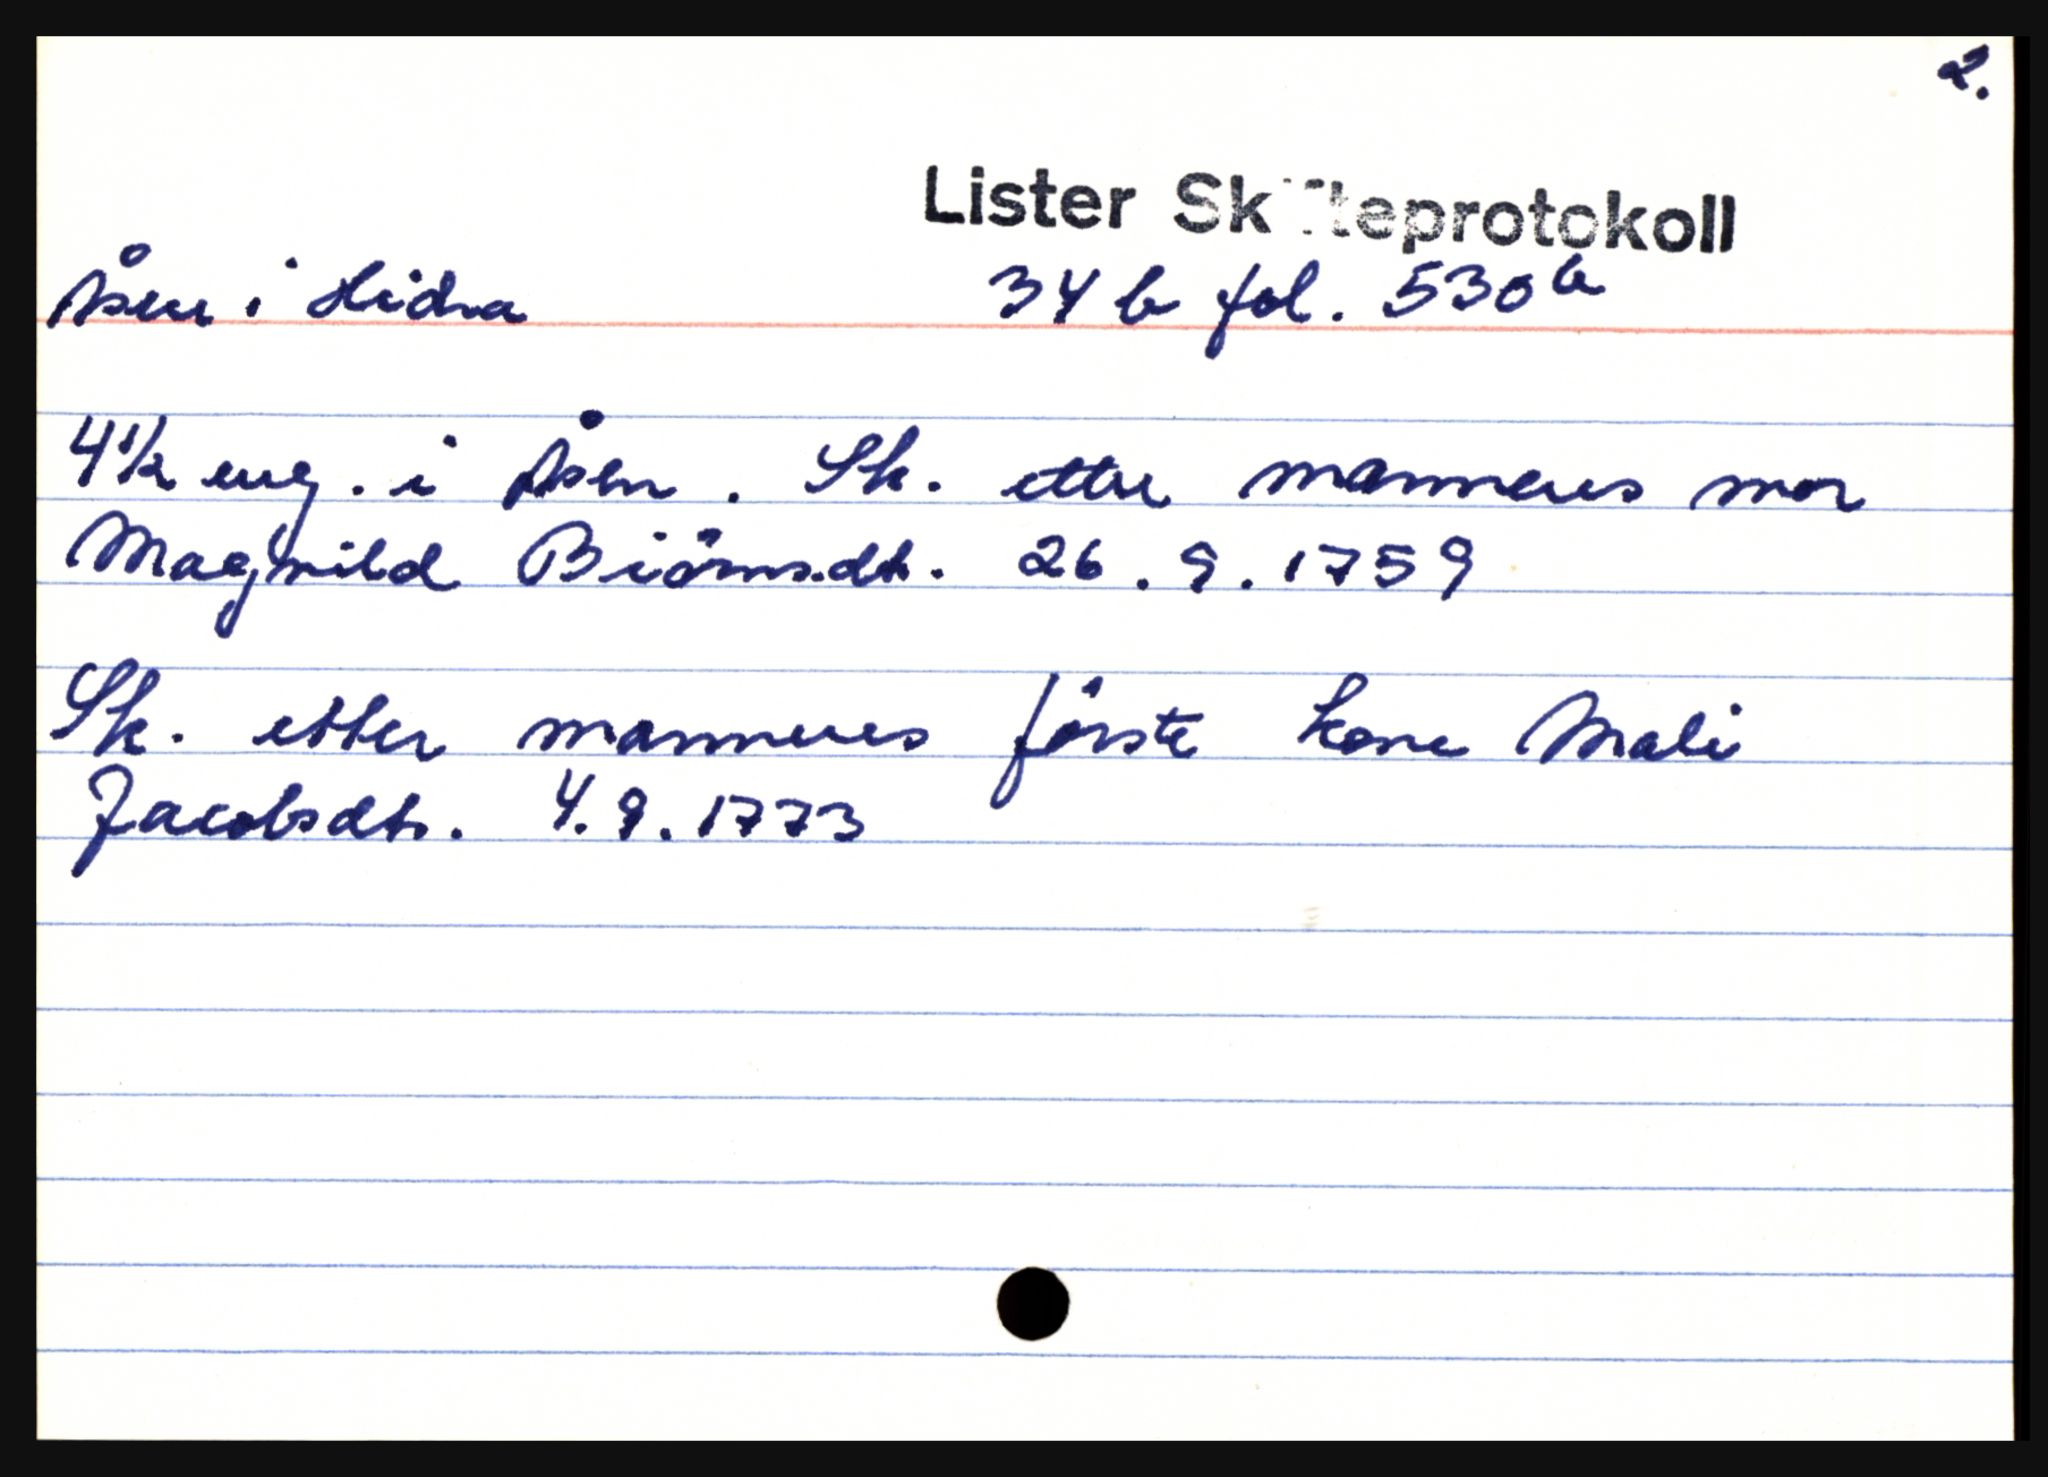 2.
Lister Skifteprotokoll
Åsen i Hidra 34 b fol. 530 b
4 1/2 eng. i Åsen. Sk. etter mannens mor
Magnild Biörnsdt. 26. 9. 1759
Sk. etter mannens förste kone Mali
Jacobsdtr. 4. 9. 1773